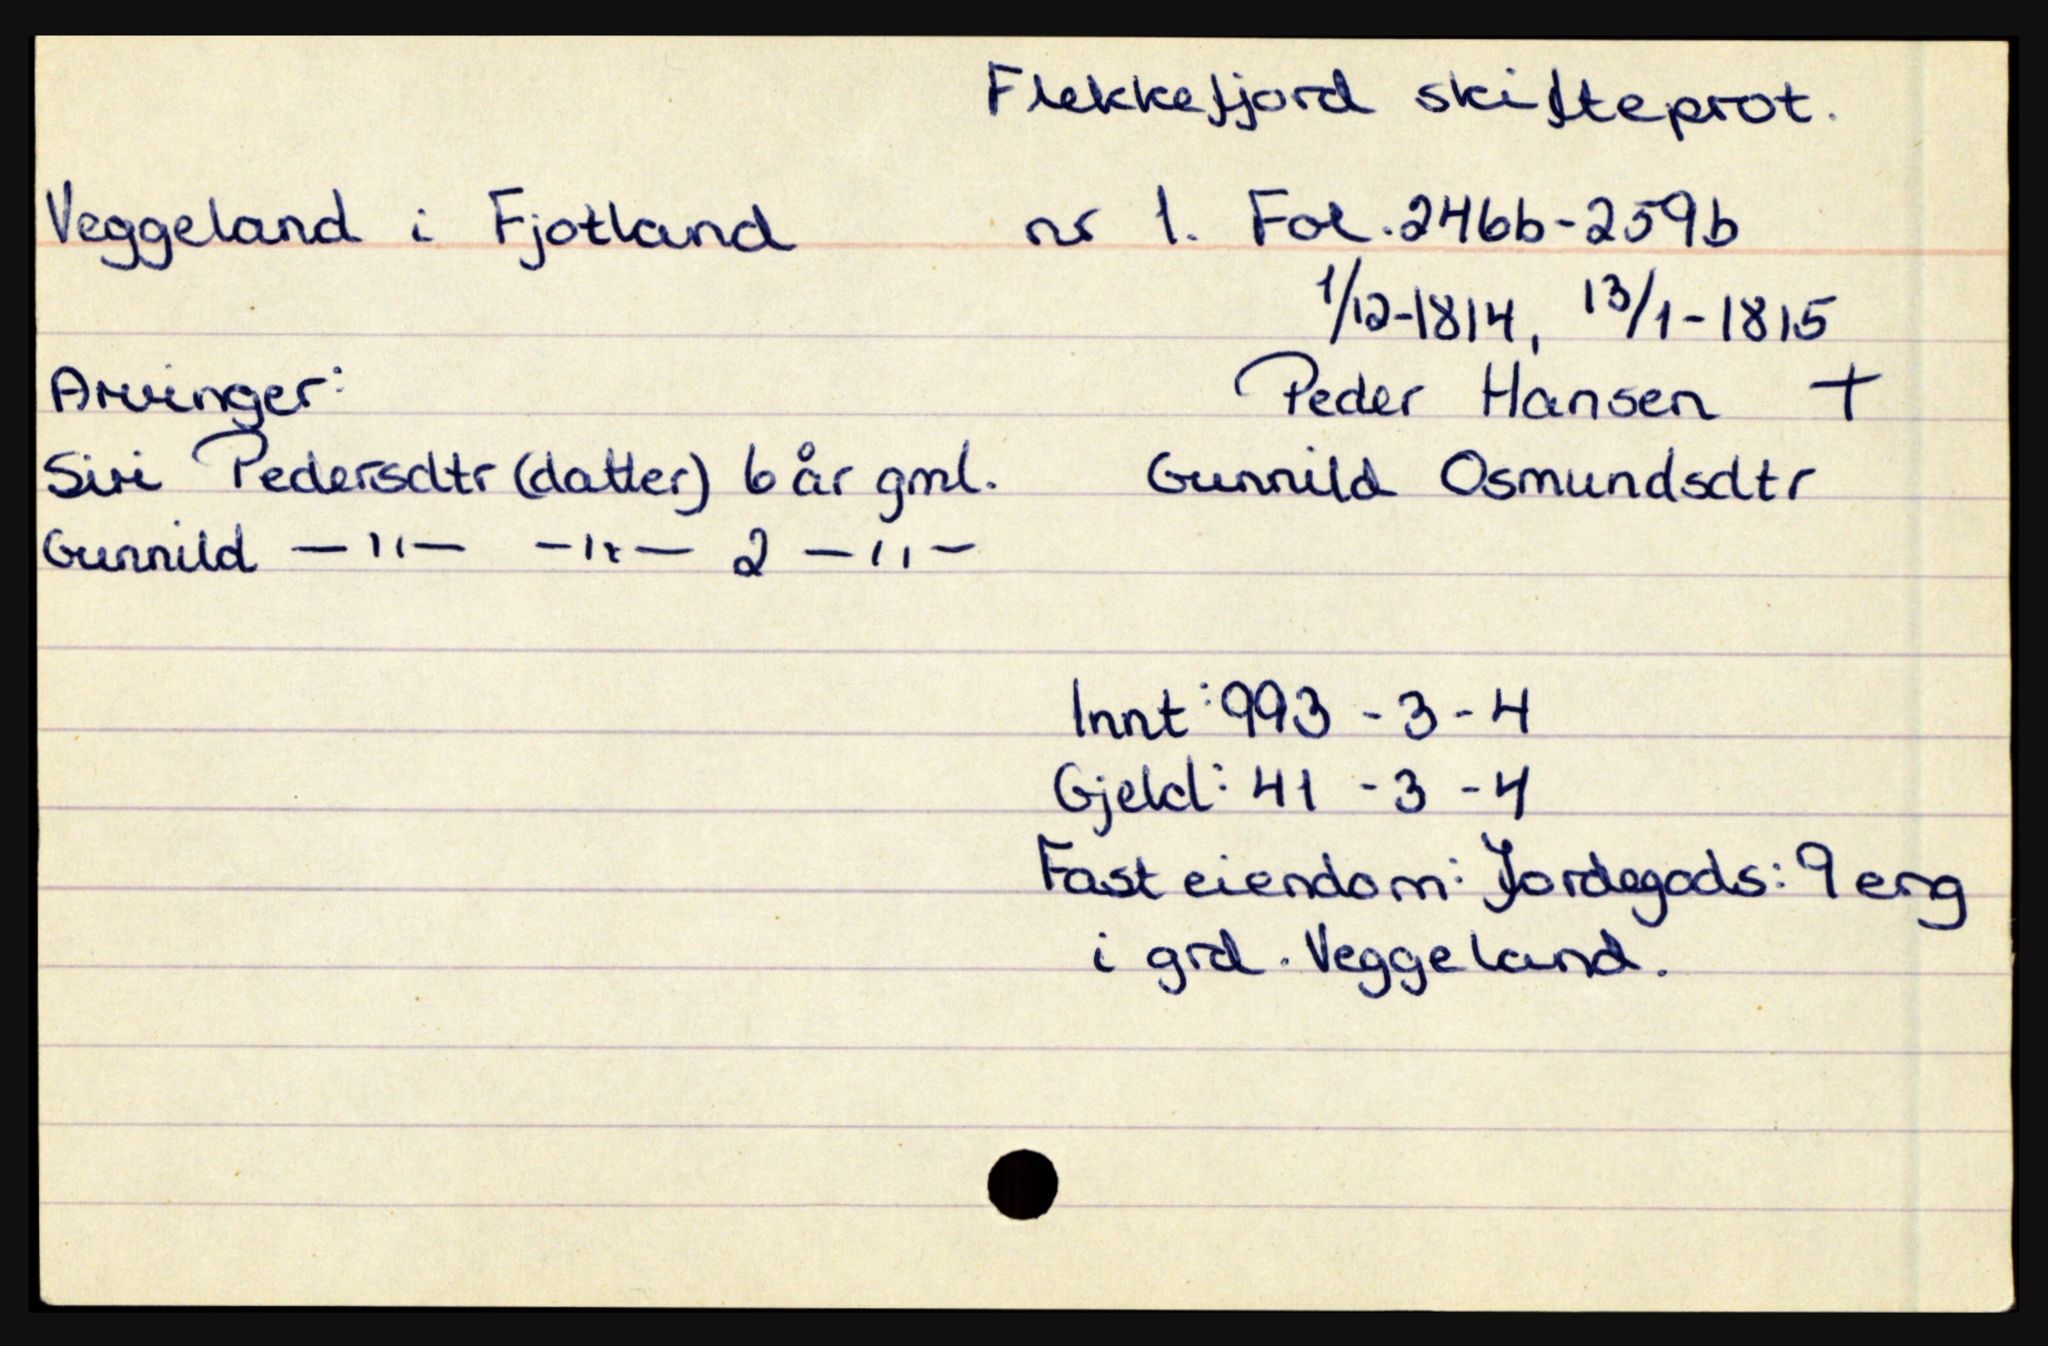 Flekkefjord skifteprot.
Veggeland i Fjotland nr 1. Fol. 246b-259b
1/12-1814, 13/1-1815
Arvinger: Peder Hansen +
Siri Pedersdtr (datter) 6 år gml. Gunnild Osmundsdtr
Gunnild —"— —"— 2 —"—
Innt: 993 - 3 - 4
Gjeld: 41 - 3 - 4
Fast eiendom: Jordegods: 9 eng
i grd. Veggeland.